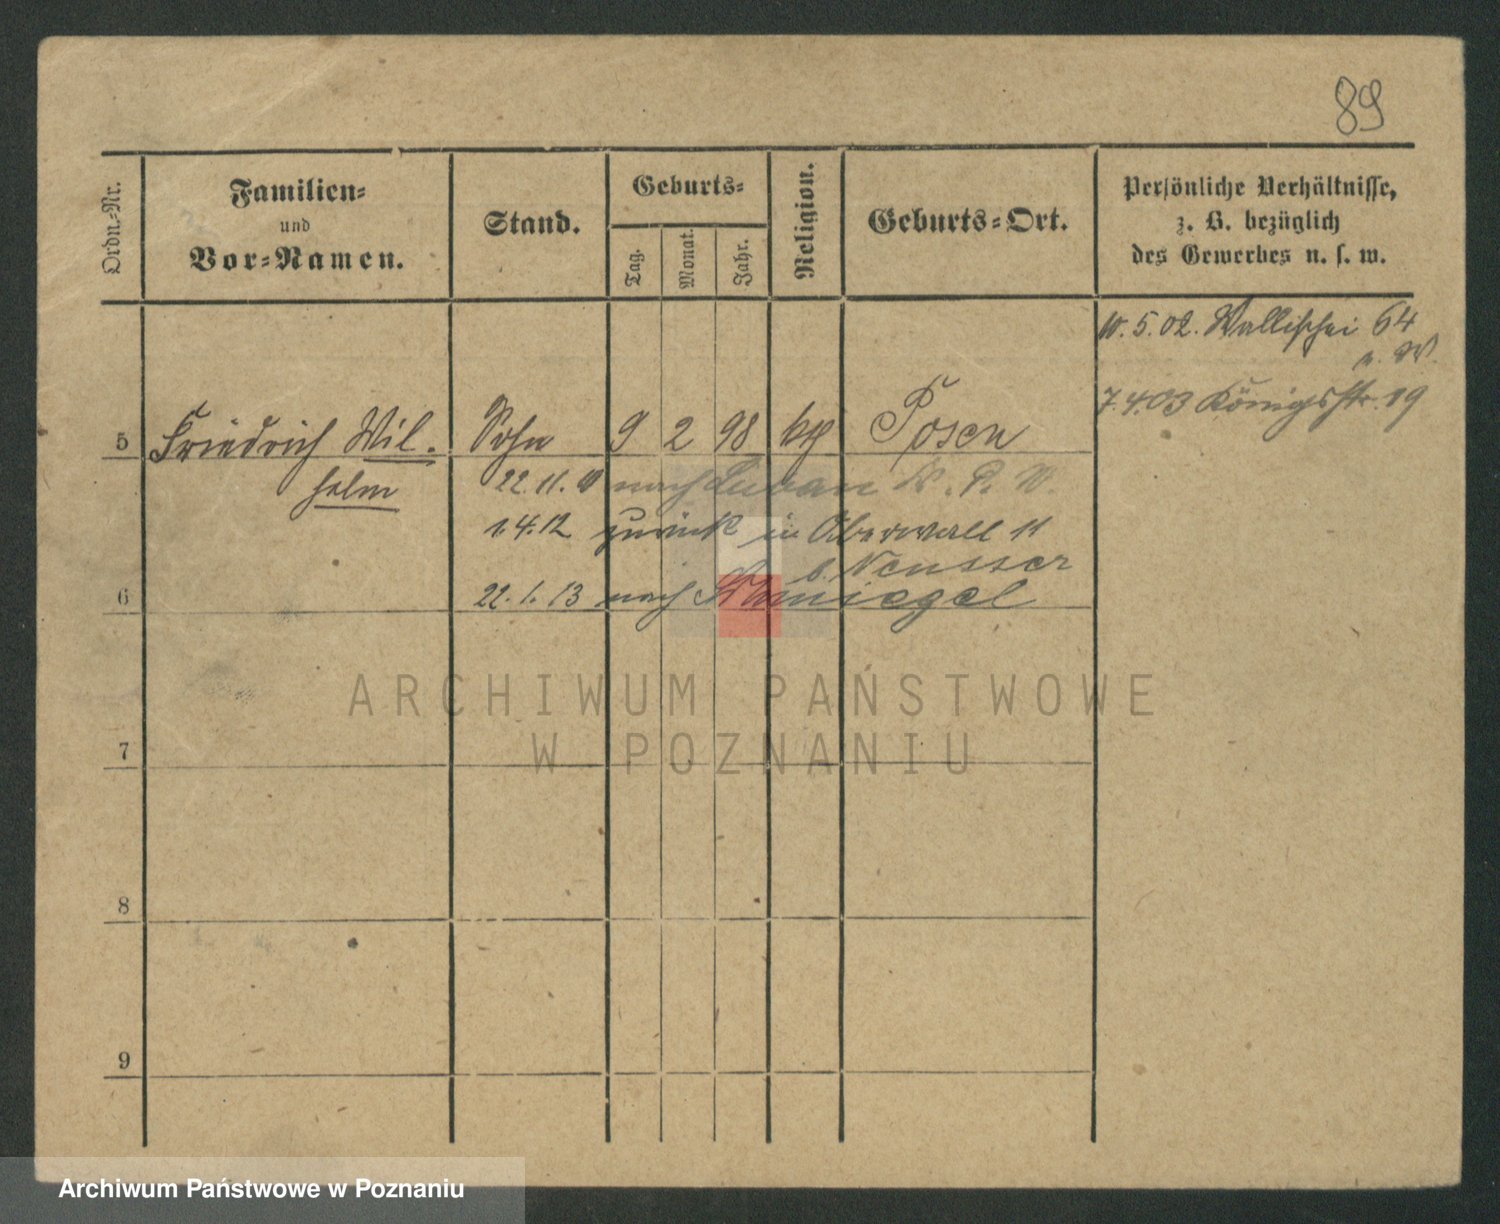 89
Ordn.-Nr.
Familien-
und
Vor-Namen.
Stand.
Geburts-
Tag.
Monat.
Jahr.
Religion.
Geburts-Ort.
Persönliche Verhältnisse,
z. B. bezüglich
des Gewerbes u. s. w.
10. 5. 02. Wallischei 64
7.4.03 Königsstr. 19
5 Friedrich Wil- Sohn 9 2 98 Posen
helm
22. 11. nach Luban Kr. P. W.
1.4.12 zurück in Oberwall 11
b. Neusser
6 22. 1. 13 nach Schmiegel
ARCHIWUM PAŃSTWOWE
W POZNANIU
7
8
9
Archiwum Państwowe w Poznaniu